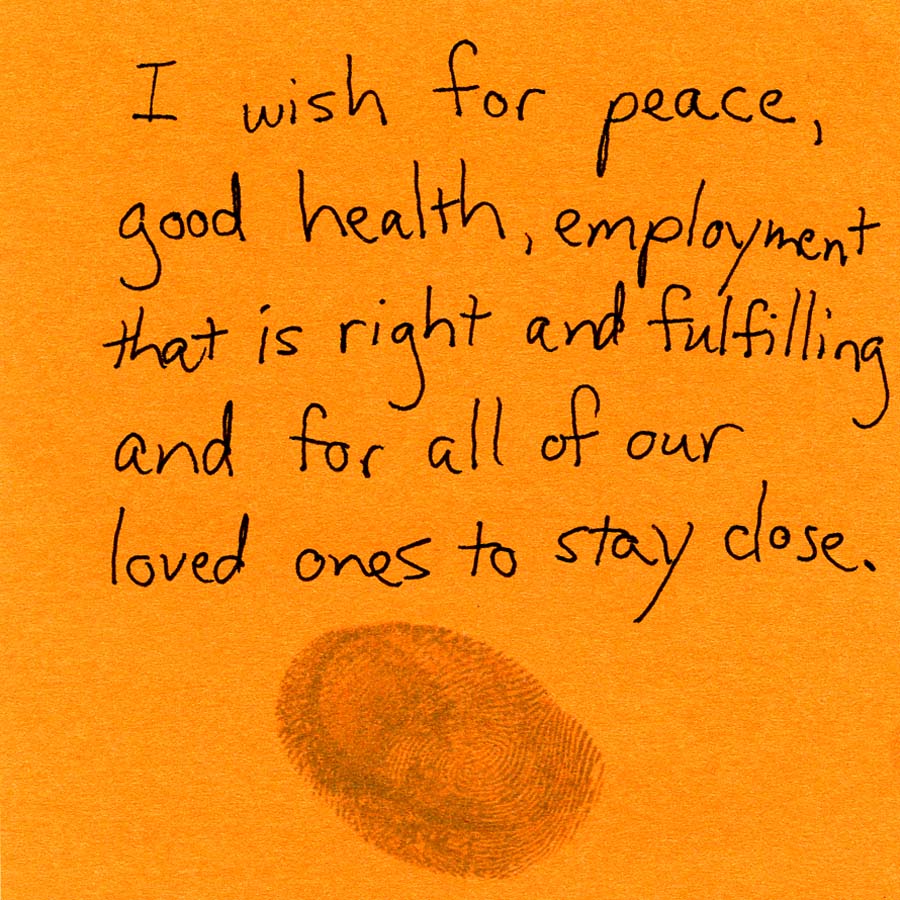 I wish for peace,
good health, employment
that is right and fulfilling
and for all of our
loved ones to stay close.